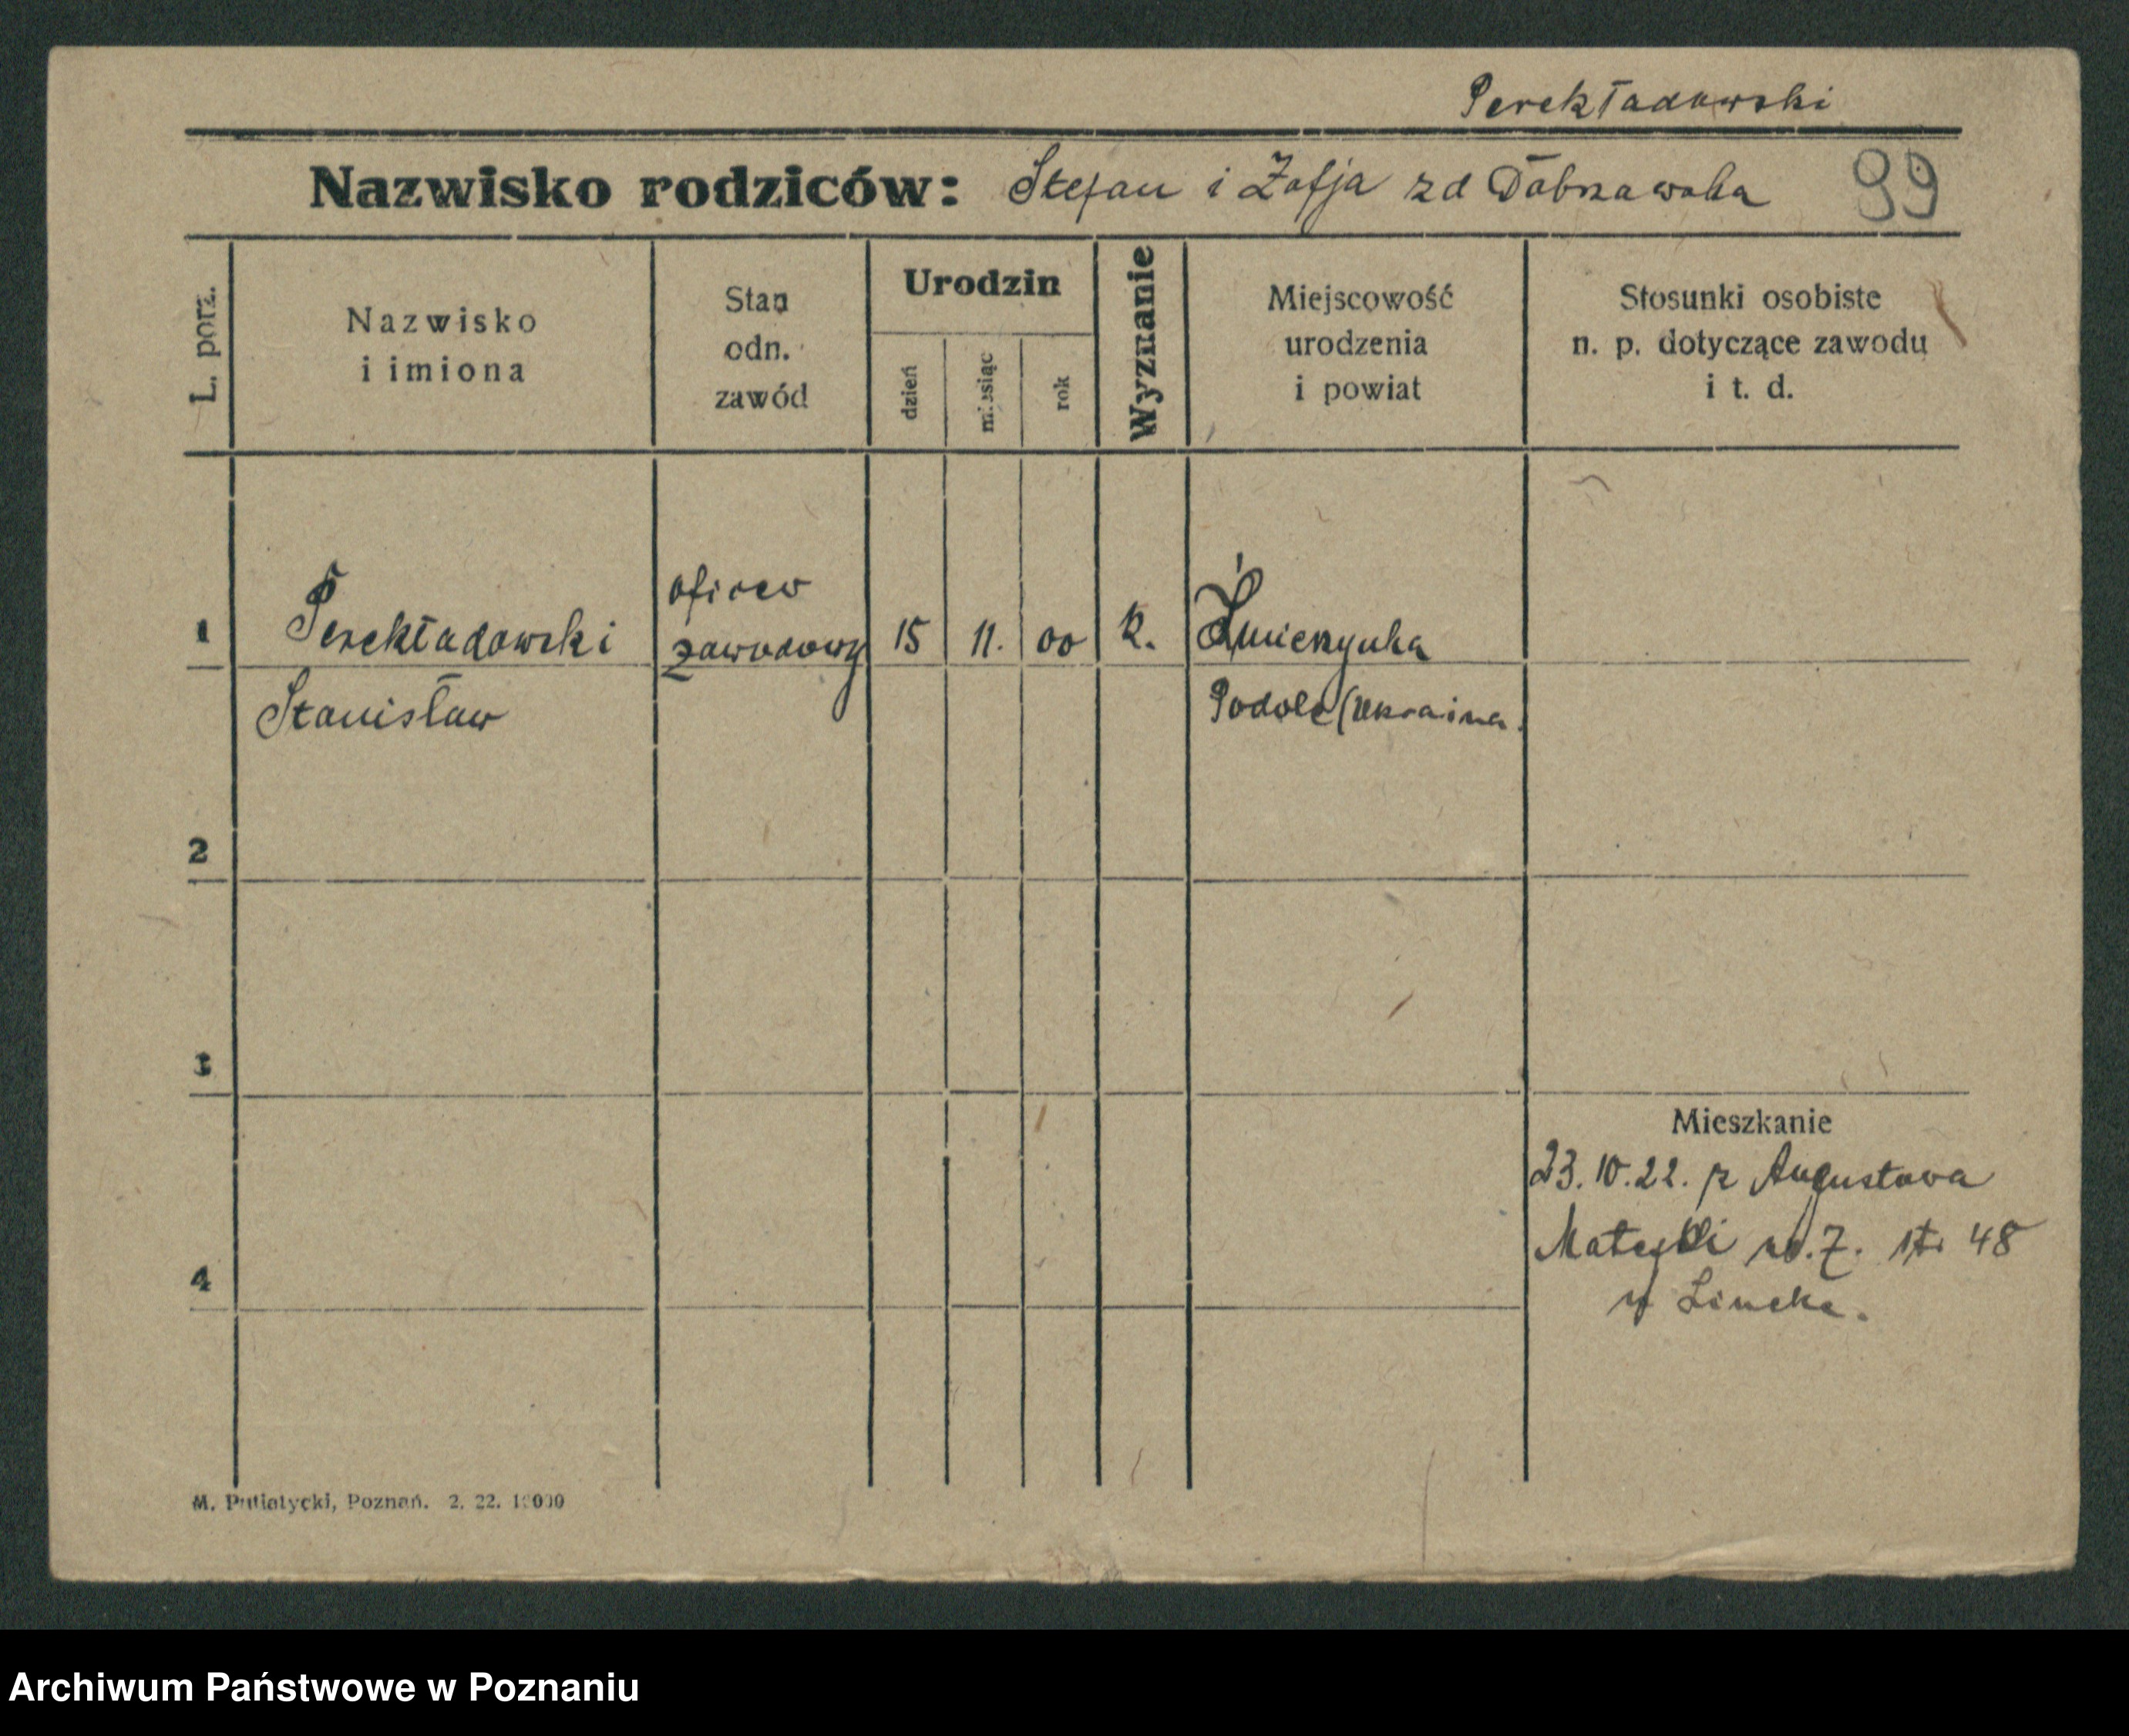 Perekładowski
Nazwisko rodziców: Stefan i Zofja zd Dobrzawska 99
L. porz.
Nazwisko
i imiona
Stan
odn.
zawód
Urodzin
dzień
miesiąc
rok
Wyznanie
Miejscowość
urodzenia
i powiat
Stosunki osobiste
n. p. dotyczące zawodu
i t. d.
1 Perekładowski oficer zawodowy 15 11. 00 K. Żmierzynka
Stanisław Podole (Ukraina.
2
3
Mieszkanie
23.10.22. z Augustowa
Matejki 7. 48
4
u Lineke.
M. Putiatycki, Poznań. 2. 22. 10000
Archiwum Państwowe w Poznaniu